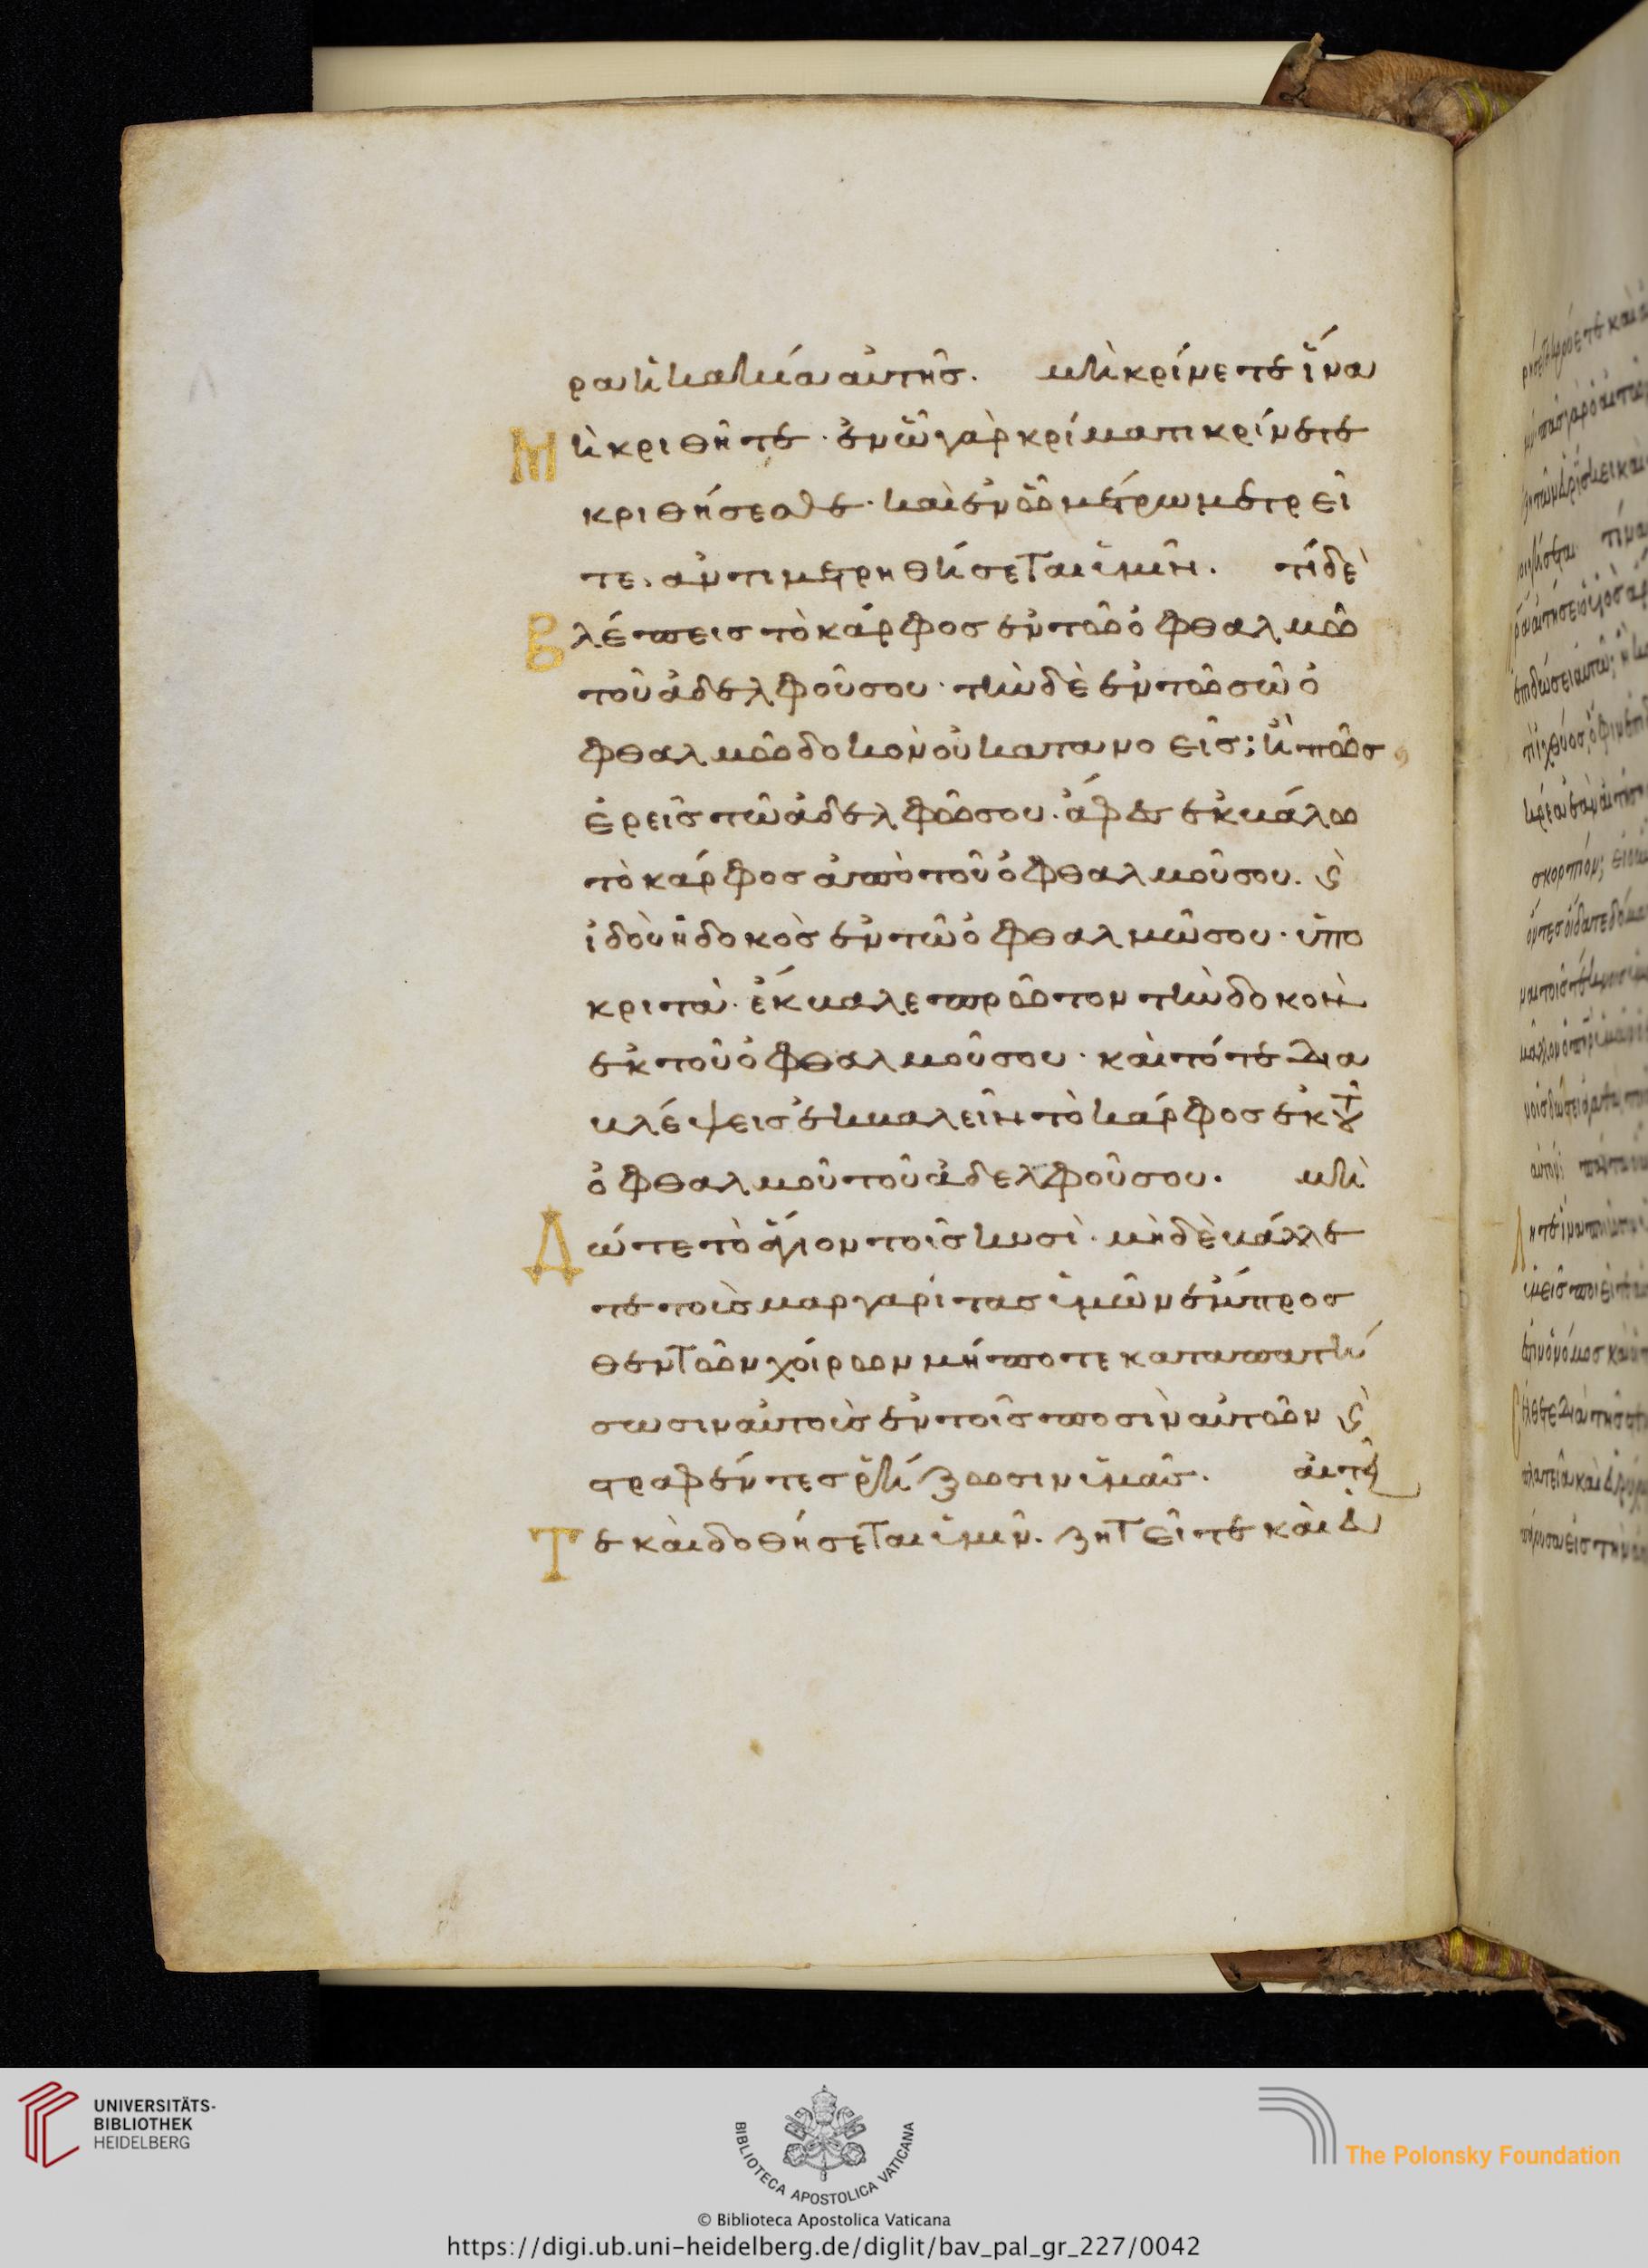 ρα ἡ κακία αὐτῆς. μὴ κρίνετε ἵνα
Μὴ κριθῆτε· ἐν ᾧ γὰρ κρίματι κρίνετε
κριθήσεσθε· καὶ ἐν ᾧ μέτρω μετρεῖ
τε. ἀντιμετρηθήσεται ὑμῖν. τί δὲ
Βλέπεις τὸ κάρφος ἐν τῶ ὀφθαλμῶ
τοῦ ἀδελφοῦ σου· τὴν δὲ ἐν τῶ σῶ ὀ
φθαλμῶ δοκὸν οὐ κατανοεῖς; ἢ πῶς
ἐρεῖς τῶ ἀδελφῶ σου· ἄφες ἐκβάλω
τὸ κάρφος ἀπὸ τοῦ ὀφθαλμοῦ σου. ϛ̀
ἰδοὺ ἡ δοκὸς ἐν τῶ ὀφθαλμῶ σου· ὑπο
κριτὰ· ἔκβαλε πρῶτον τὴν δοκὸν
ἐκ τοῦ ὀφθαλμοῦ σου· καὶ τότε δια
βλέψεις ἐκβαλεῖν τὸ κάρφος ἐκ τοῦ
ὀφθαλμοῦ τοῦ ἀδελφοῦ σου. μὴ
Δώτε τὸ ἅγιον τοῖς κυσὶ· μὴδὲ βάλλε
τε τοὺς μαργαρίτας ὑμῶν ἔμπροσ
θεν τῶν χοίρων μήποτε καταπατή
σωσιν αὐτοὺς ἐν τοῖς ποσὶν αὐτῶν ϛ̀
στραφέντες ῥήξωσιν ὑμᾶς. αἰτεῖ
Τε καὶ δοθήσεται ὑμῖν. ζητεῖτε καὶ εὑ
UNIVERSITÄTS-
BIBLIOTHEK
HEIDELBERG
BIBLIOTECA APOSTOLICA VATICANA
The Polonsky Foundation
© Biblioteca Apostolica Vaticana
https://digi.ub.uni-heidelberg.de/diglit/bav_pal_gr_227/0042